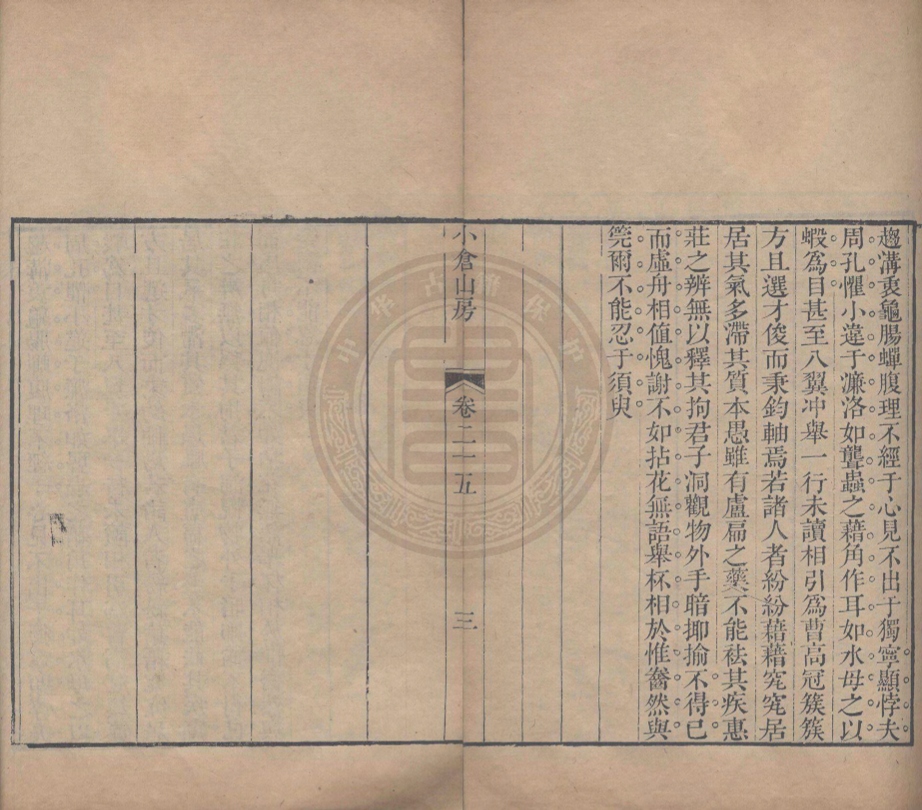 趨溝衷龜腸蟬腹理不經于心見不出于獨寧顯悖夫
周孔懼小違于濂洛如聾蟲之藉角作耳如水母之以
蝦爲目甚至八翼冲舉一行未讀相引爲曹高冠簇簇
方且選才俊而秉鈞軸焉若諸人者紛紛藉藉究究居
居其氣多滯其質本愚雖有盧扁之藥不能祛其疾惠
莊之辨無以釋其拘君子洞觀物外手暗揶揄不得已
而虛舟相值愧謝不如拈花無語舉杯相於惟齤然與
筦爾不能忍于須臾
小倉山房
卷二十五
三
中华古籍保护